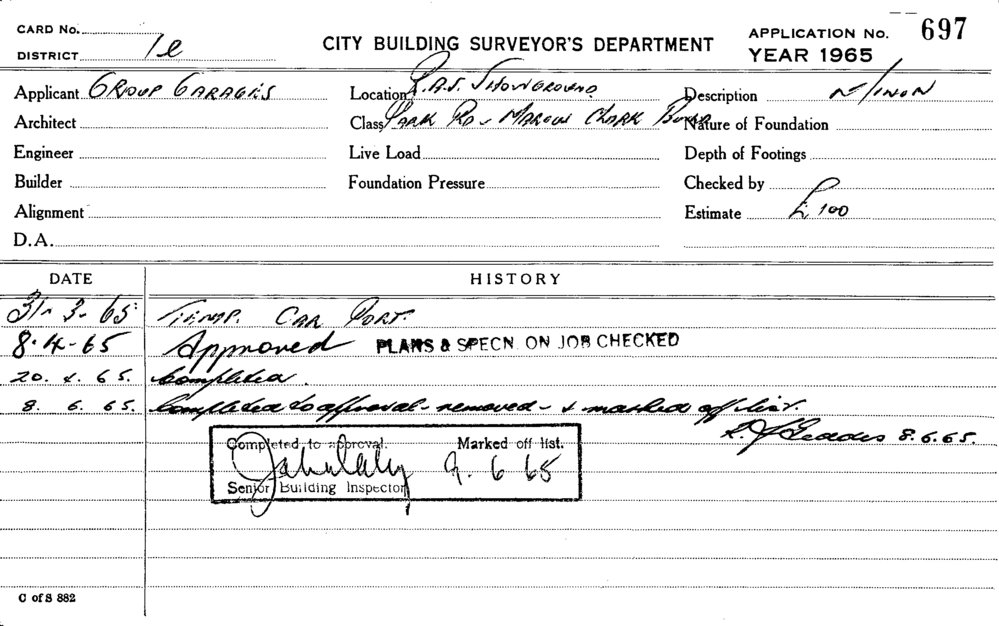 CARD No.
DISTRICT 1e
CITY BUILDING SURVEYOR'S DEPARTMENT
APPLICATION No. 697
YEAR 1965
Applicant GROUP GARAGES
Location R.A.S. SHOWGROUND
Description
Architect
Class PARK RD - MARCUS CLARK
Nature of Foundation
Engineer
Live Load
Depth of Footings
Builder
Foundation Pressure
Checked by
Alignment
Estimate £100
D.A.
DATE HISTORY
31-3-65 TEMP. CAR PORT.
8.4-65 Approved PLANS & SPECN. ON JOB CHECKED
20.4.65. Completed.
8. 6. 65. Completed to approval - removed - & marked off list.
8.6.65.
Completed to approval. Marked off list.
9. 6 65
Senior Building Inspector
C of S 882